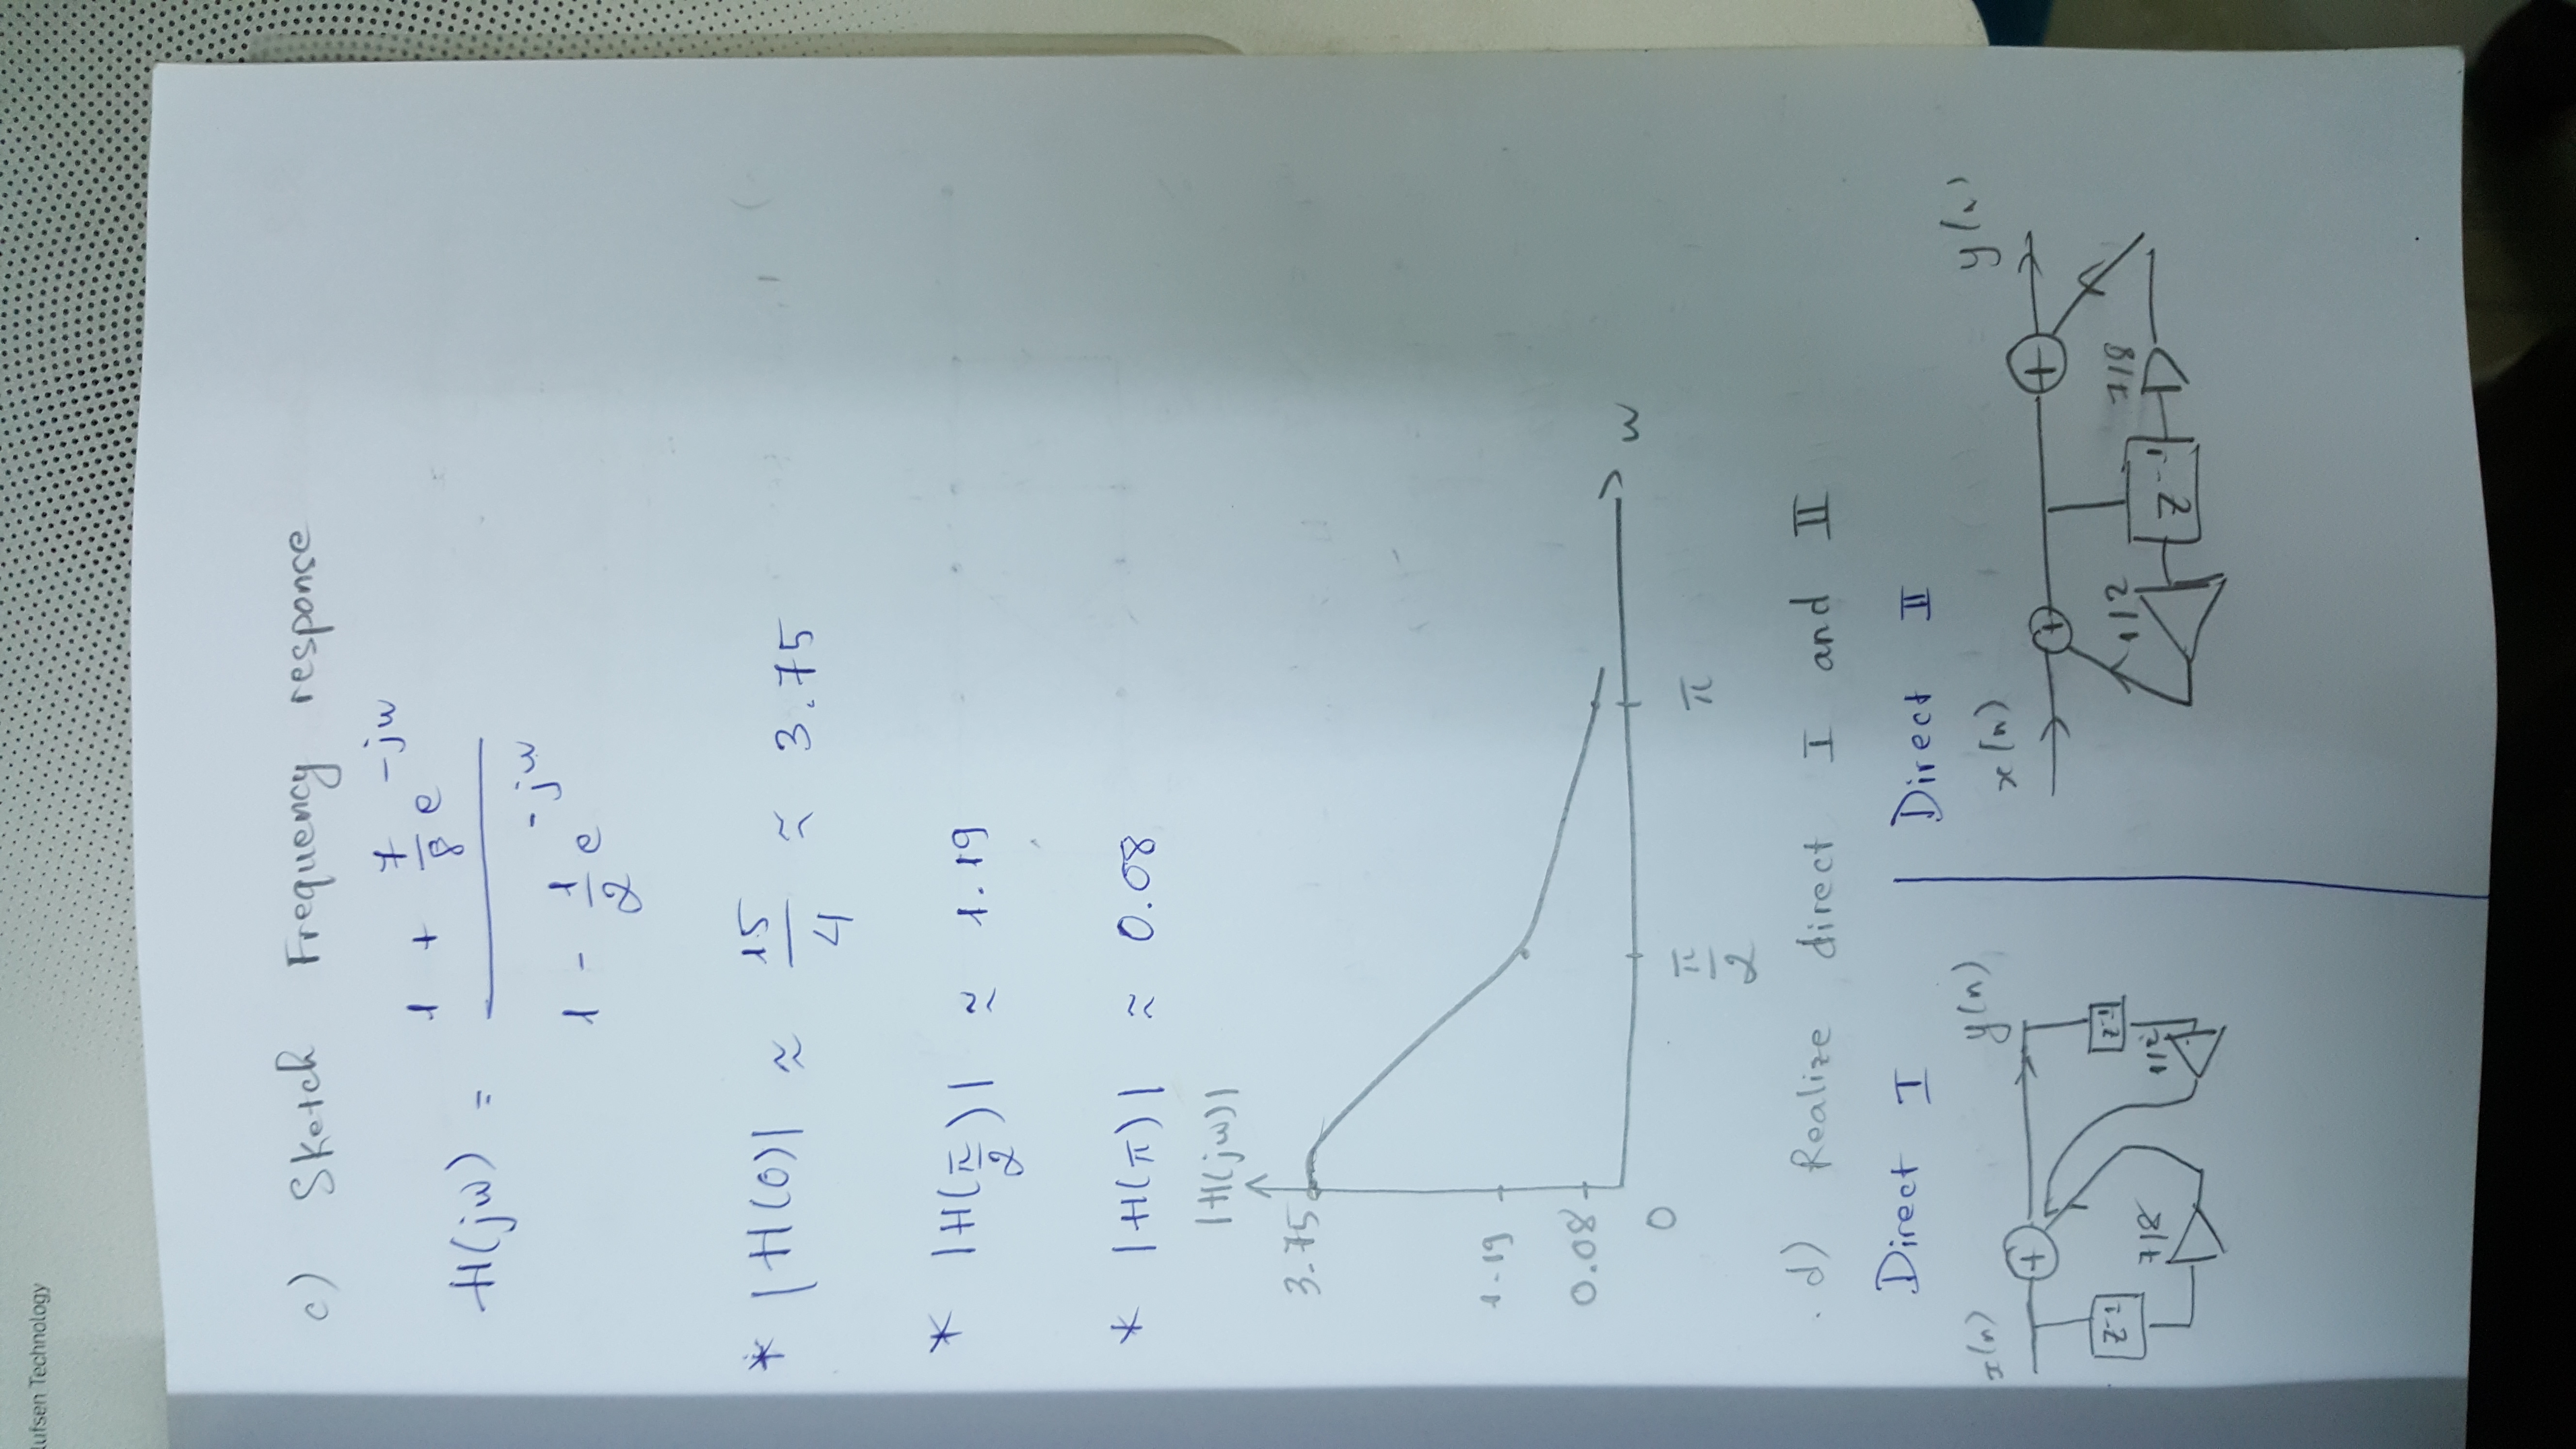 lufsen Technology
c) Sketch Frequency response
H(jw) = (1 + 7/8 e^-jw) / (1 - 1/2 e^-jw)
* |H(0)| ≈ 15/4 ≈ 3.75
* |H(π/2)| ≈ 1.19
* |H(π)| ≈ 0.08
|H(jw)|
3.75
1.19
0.08
0
π/2
π
w
d) Realize direct I and II
Direct I
x(n)
+
y(n)
z-1
7/8
z-1
1/2
Direct II
x(n)
+
+
y(n)
1/2
z-1
7/8